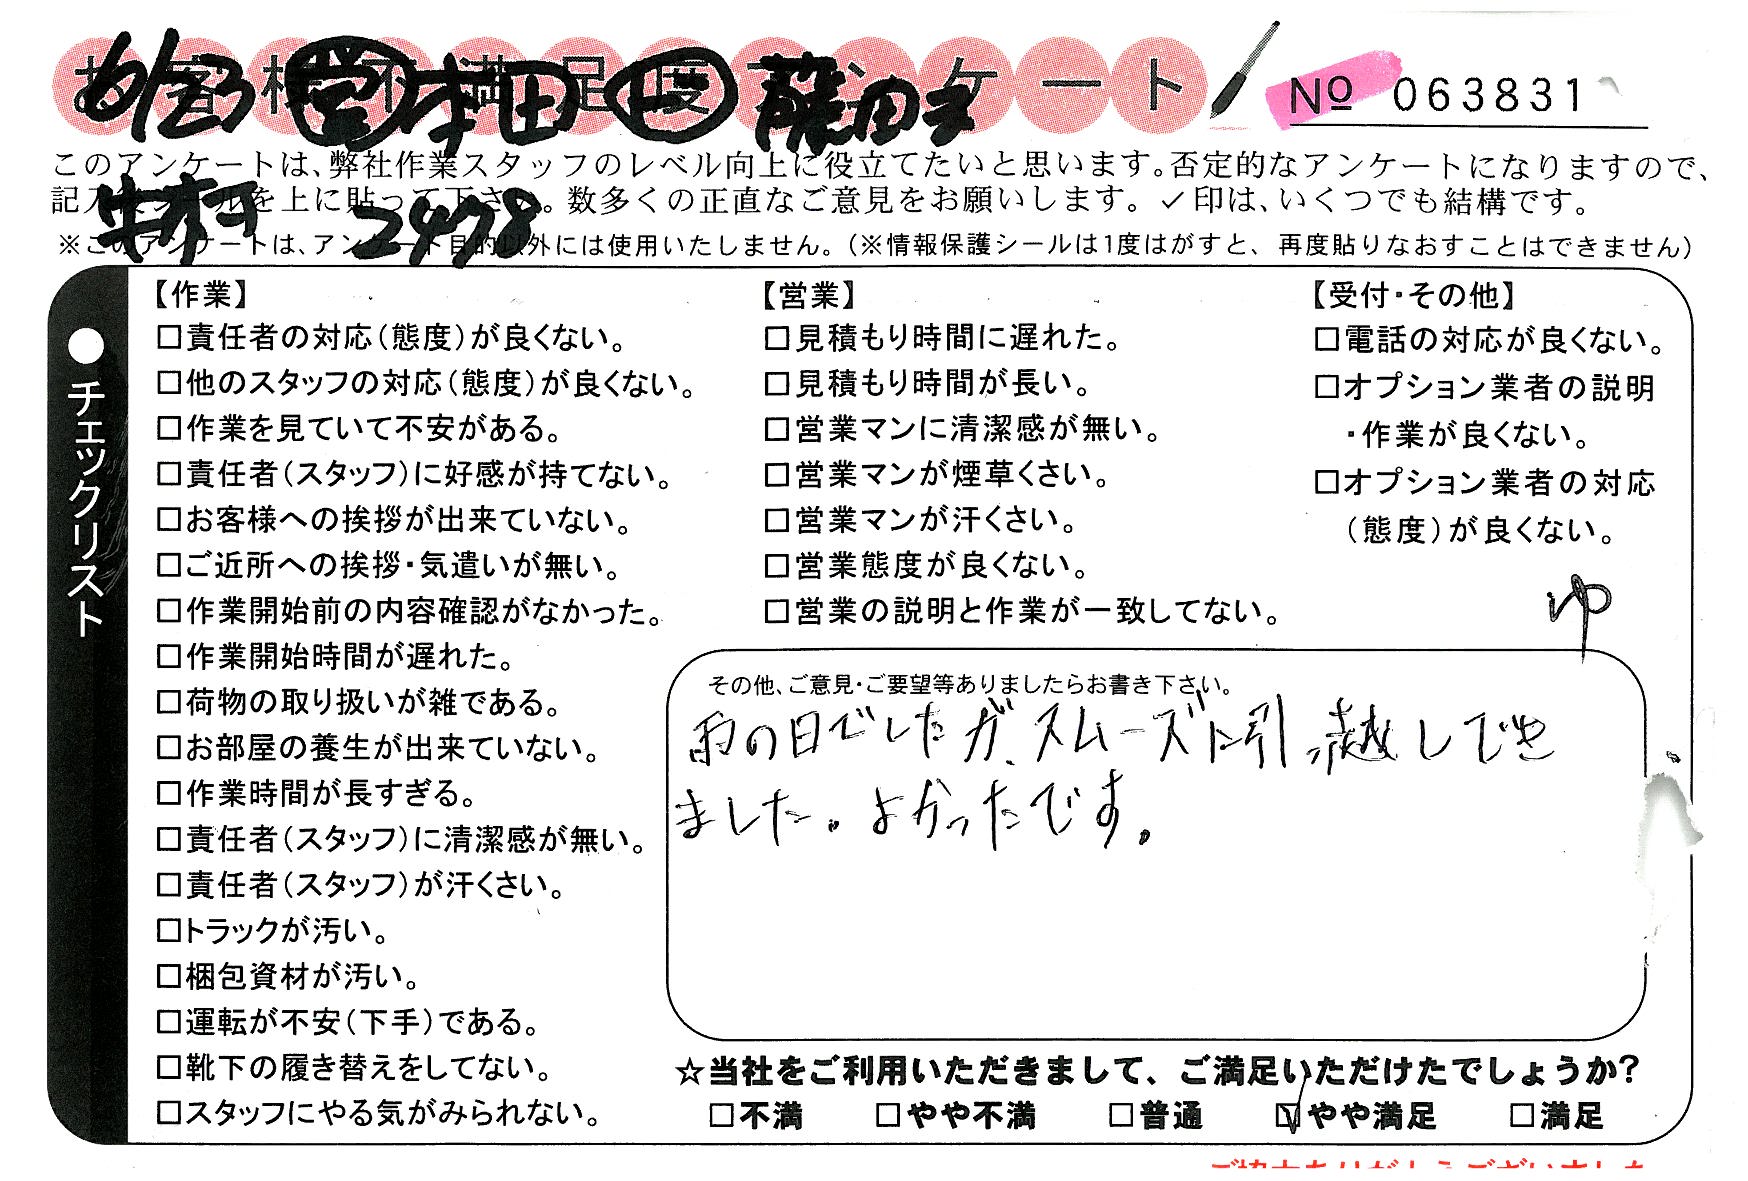 お客様不満足度アンケート
6/23 営 本田 一 藤田
牛木 2478
No 063831
このアンケートは、弊社作業スタッフのレベル向上に役立てたいと思います。否定的なアンケートになりますので、
記入後シールを上に貼って下さい。数多くの正直なご意見をお願いします。✓印は、いくつでも結構です。
※このアンケートは、アンケート目的以外には使用いたしません。（※情報保護シールは1度はがすと、再度貼りなおすことはできません）
●チェックリスト
【作業】
□責任者の対応（態度）が良くない。
□他のスタッフの対応（態度）が良くない。
□作業を見ていて不安がある。
□責任者（スタッフ）に好感が持てない。
□お客様への挨拶が出来ていない。
□ご近所への挨拶・気遣いが無い。
□作業開始前の内容確認がなかった。
□作業開始時間が遅れた。
□荷物の取り扱いが雑である。
□お部屋の養生が出来ていない。
□作業時間が長すぎる。
□責任者（スタッフ）に清潔感が無い。
□責任者（スタッフ）が汗くさい。
□トラックが汚い。
□梱包資材が汚い。
□運転が不安（下手）である。
□靴下の履き替えをしてない。
□スタッフにやる気がみられない。
【営業】
□見積もり時間に遅れた。
□見積もり時間が長い。
□営業マンに清潔感が無い。
□営業マンが煙草くさい。
□営業マンが汗くさい。
□営業態度が良くない。
□営業の説明と作業が一致してない。
【受付・その他】
□電話の対応が良くない。
□オプション業者の説明
・作業が良くない。
□オプション業者の対応
（態度）が良くない。
ゆ
その他、ご意見・ご要望等ありましたらお書き下さい。
雨の日でしたが、スムーズに引っ越しでき
ました。よかったです。
☆当社をご利用いただきまして、ご満足いただけたでしょうか？
□不満 □やや不満 □普通 ☑やや満足 □満足
ご協力ありがとうございました